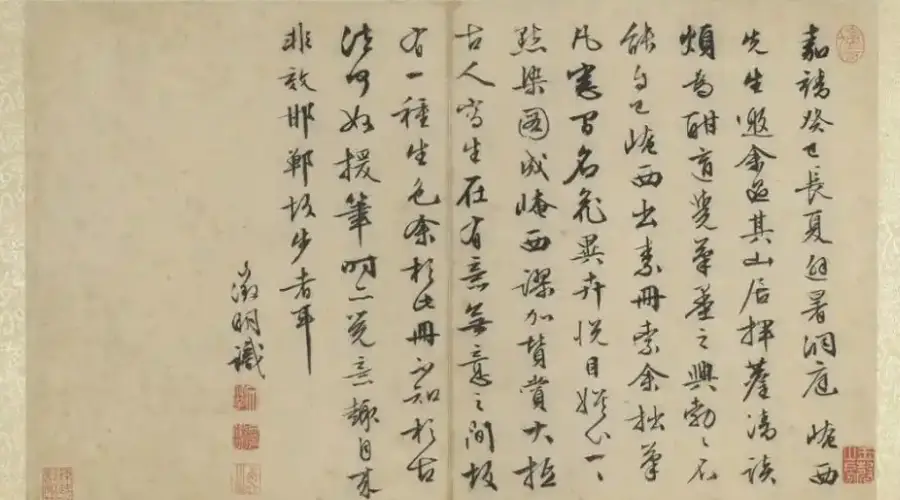 嘉靖癸巳長夏避暑洞庭崦西
先生邀余過其山居揮麈清談
頗為酣適覺筆墨之興勃〻不
能自已崦西出素冊索余拙筆
凡窓間名花異卉悅目娛心一一
點染圖成崦西謬加賛賞大抵
古人寫生在有意無意之間故
有一種生色余於此冊不知於古
法何如援筆時亦覺意趣自來
非效邯鄲故步者耳
徵明識